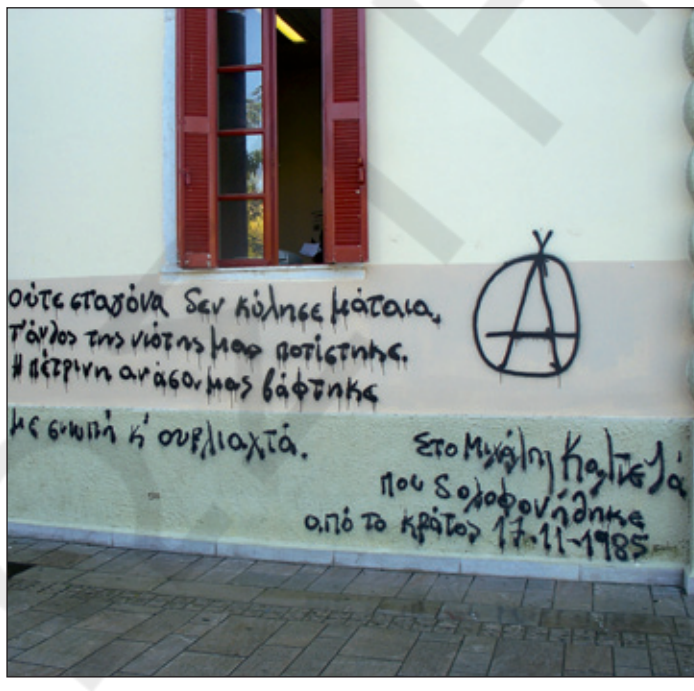 ούτε σταγόνα δεν κύλησε μάταια.
τ' άνθος της νιότης μας ποτίστηκε.
Η πέτρινη ανάσα μας βάφτηκε
με σιωπή κ' ουρλιαχτά.
Στο Μιχάλη Καλτεζά
που δολοφονήθηκε
από το κράτος 17-11-1985